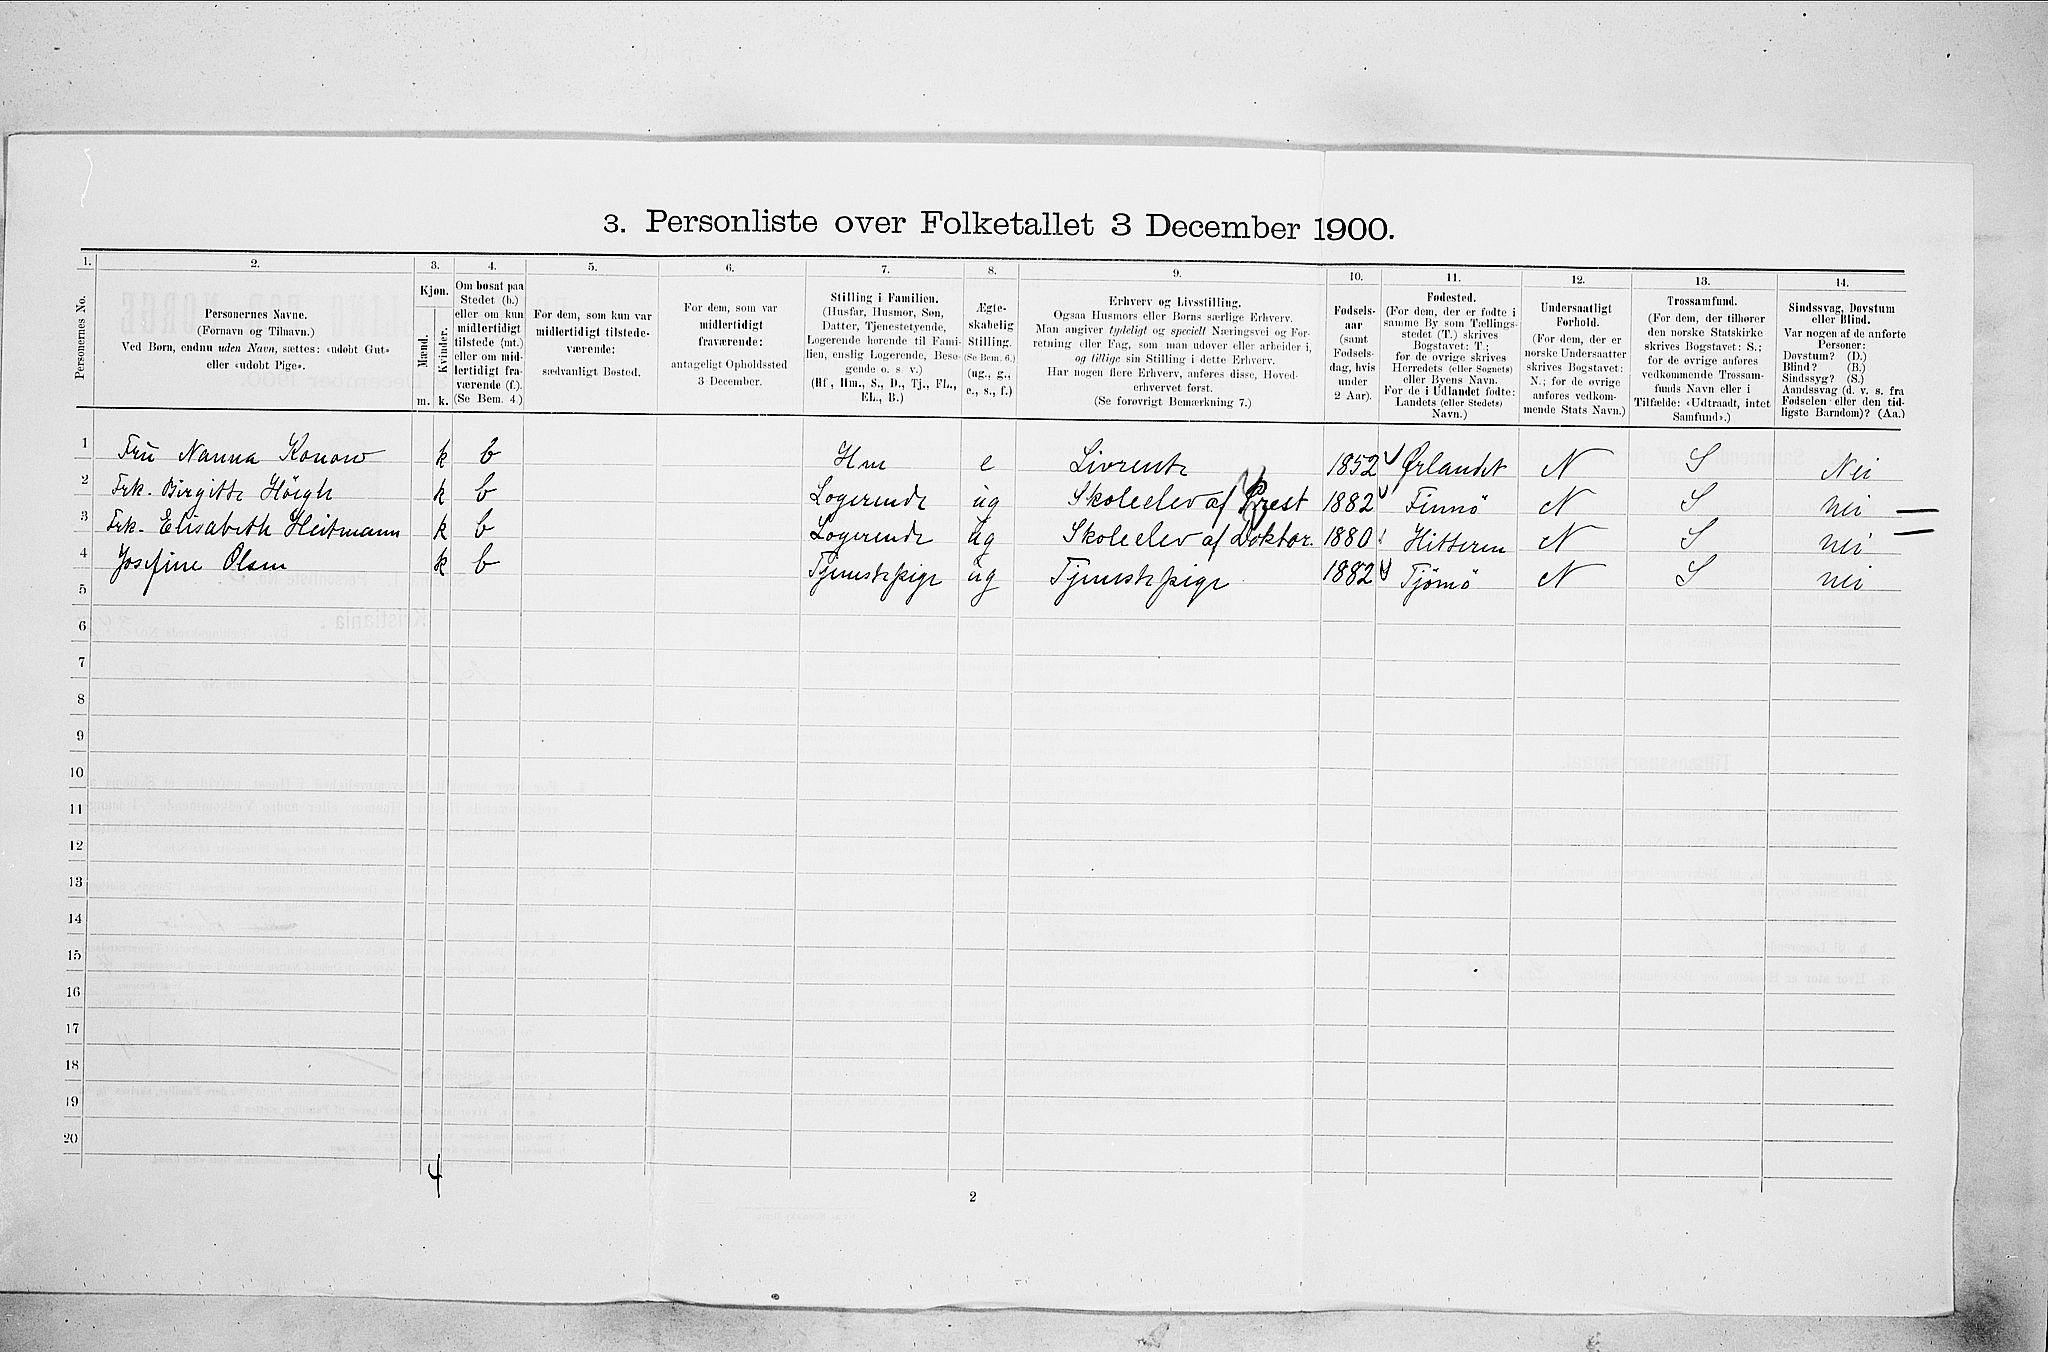 3. Personliste over Folketallet 3 December 1900.
1. 2. 3. 4. 5. 6. 7. 8. 9. 10. 11. 12. 13. 14.
Personernes No.
Personernes Navne.
(Fornavn og Tilnavn.)
Ved Børn, endnu uden Navn, sættes: «udøbt Gut»
eller «udøbt Pige».
Kjøn.
Mænd.
Kvinder.
m. k.
Om bosat paa
Stedet (b.)
eller om kun
midlertidigt
tilstede (mt.)
eller om mid-
lertidigt fra-
værende (f.).
(Se Bem. 4.)
For dem, som kun var
midlertidigt tilstede-
værende:
sædvanligt Bosted.
For dem, som var
midlertidigt
fraværende:
antageligt Opholdssted
3 December.
Stilling i Familien.
(Husfar, Husmor, Søn,
Datter, Tjenestetyende,
Logerende hørende til Fami-
lien, enslig Logerende, Besø-
gende o. s. v.)
(Hf., Hm., S., D., Tj., FL.,
EL., B.)
Ægte-
skabelig
Stilling.
(Se Bem. 6.)
(ug., g.,
e., s., f.)
Erhverv og Livsstilling.
Ogsaa Husmors eller Børns særlige Erhverv.
Man angiver tydeligt og specielt Næringsvei og For-
retning eller Fag, som man udøver eller arbeider i,
og tillige sin Stilling i dette Erhverv.
Har nogen flere Erhverv, anføres disse, Hoved-
erhvervet først.
(Se forøvrigt Bemærkning 7.)
Fødsels-
aar
(samt
Fødsels-
dag, hvis
under
2 Aar).
Fødested.
(For dem, der er fødte i
samme By som Tællings-
stedet (T.) skrives
Bogstavet: T.;
for de øvrige skrives
Herredets (eller Sognets)
eller Byens Navn.
For de i Udlandet fødte:
Landets (eller Stedets)
Navn.)
Undersaatligt
Forhold.
(For dem, der er
norske Undersaatter
skrives Bogstavet:
N.; for de øvrige
anføres vedkom-
mende Stats Navn.)
Trossamfund.
(For dem, der tilhører
den norske Statskirke
skrives Bogstavet: S.;
for de øvrige anføres
vedkommende Trossam-
funds Navn eller i
Tilfælde: «Udtraadt, intet
Samfund».)
Sindssvag, Døvstum
eller Blind.
Var nogen af de anførte
Personer:
Døvstum? (D.)
Blind? (B.)
Sindssyg? (S.)
Aandssvag (d. v. s. fra
Fødselen eller den tid-
ligste Barndom)? (Aa.)
1 Fru Nanna Konow k b Hm e Livrente 1852 Ørlandet N S Nei
2 Frk. Birgitte Höegh k b Logerende ug Skoleelev af Prest 1882 Finnö N S nei
3 Frk. Elisabeth Heitmann k b Logerende ug Skoleelev af Doktor. 1880 Hitteren N S nei
4 Josefine Olsen k b Tjenestepige ug Tjenestepige 1882 Tjömö N S nei
5
6
7
8
9
10
11
12
13
14
15
16
17
18
19
20
4
2